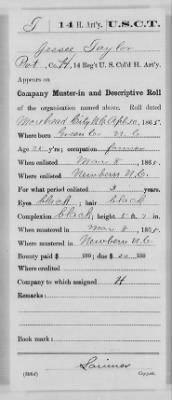 T 14 H. Art'y. U.S.C.T.
Jessee Taylor
Pvt., Co. H, 14 Reg't U. S. Col'd H. Art'y.
Appears on
Company Muster-in and Descriptive Roll
of the organization named above. Roll dated
Morehead City N.C. Apl. 30, 1865.
Where born Green Co. N.C.
Age 22 y'rs; occupation farmer
When enlisted Mar 8, 1865.
Where enlisted Newbern N.C.
For what period enlisted 3 years.
Eyes black; hair black
Complexion black; height 5 ft. 7 in.
When mustered in Mar 8, 1865.
Where mustered in Newbern N.C.
Bounty paid $ 100; due $ 100
Where credited
Company to which assigned H
Remarks:
Book mark:
Copyist.